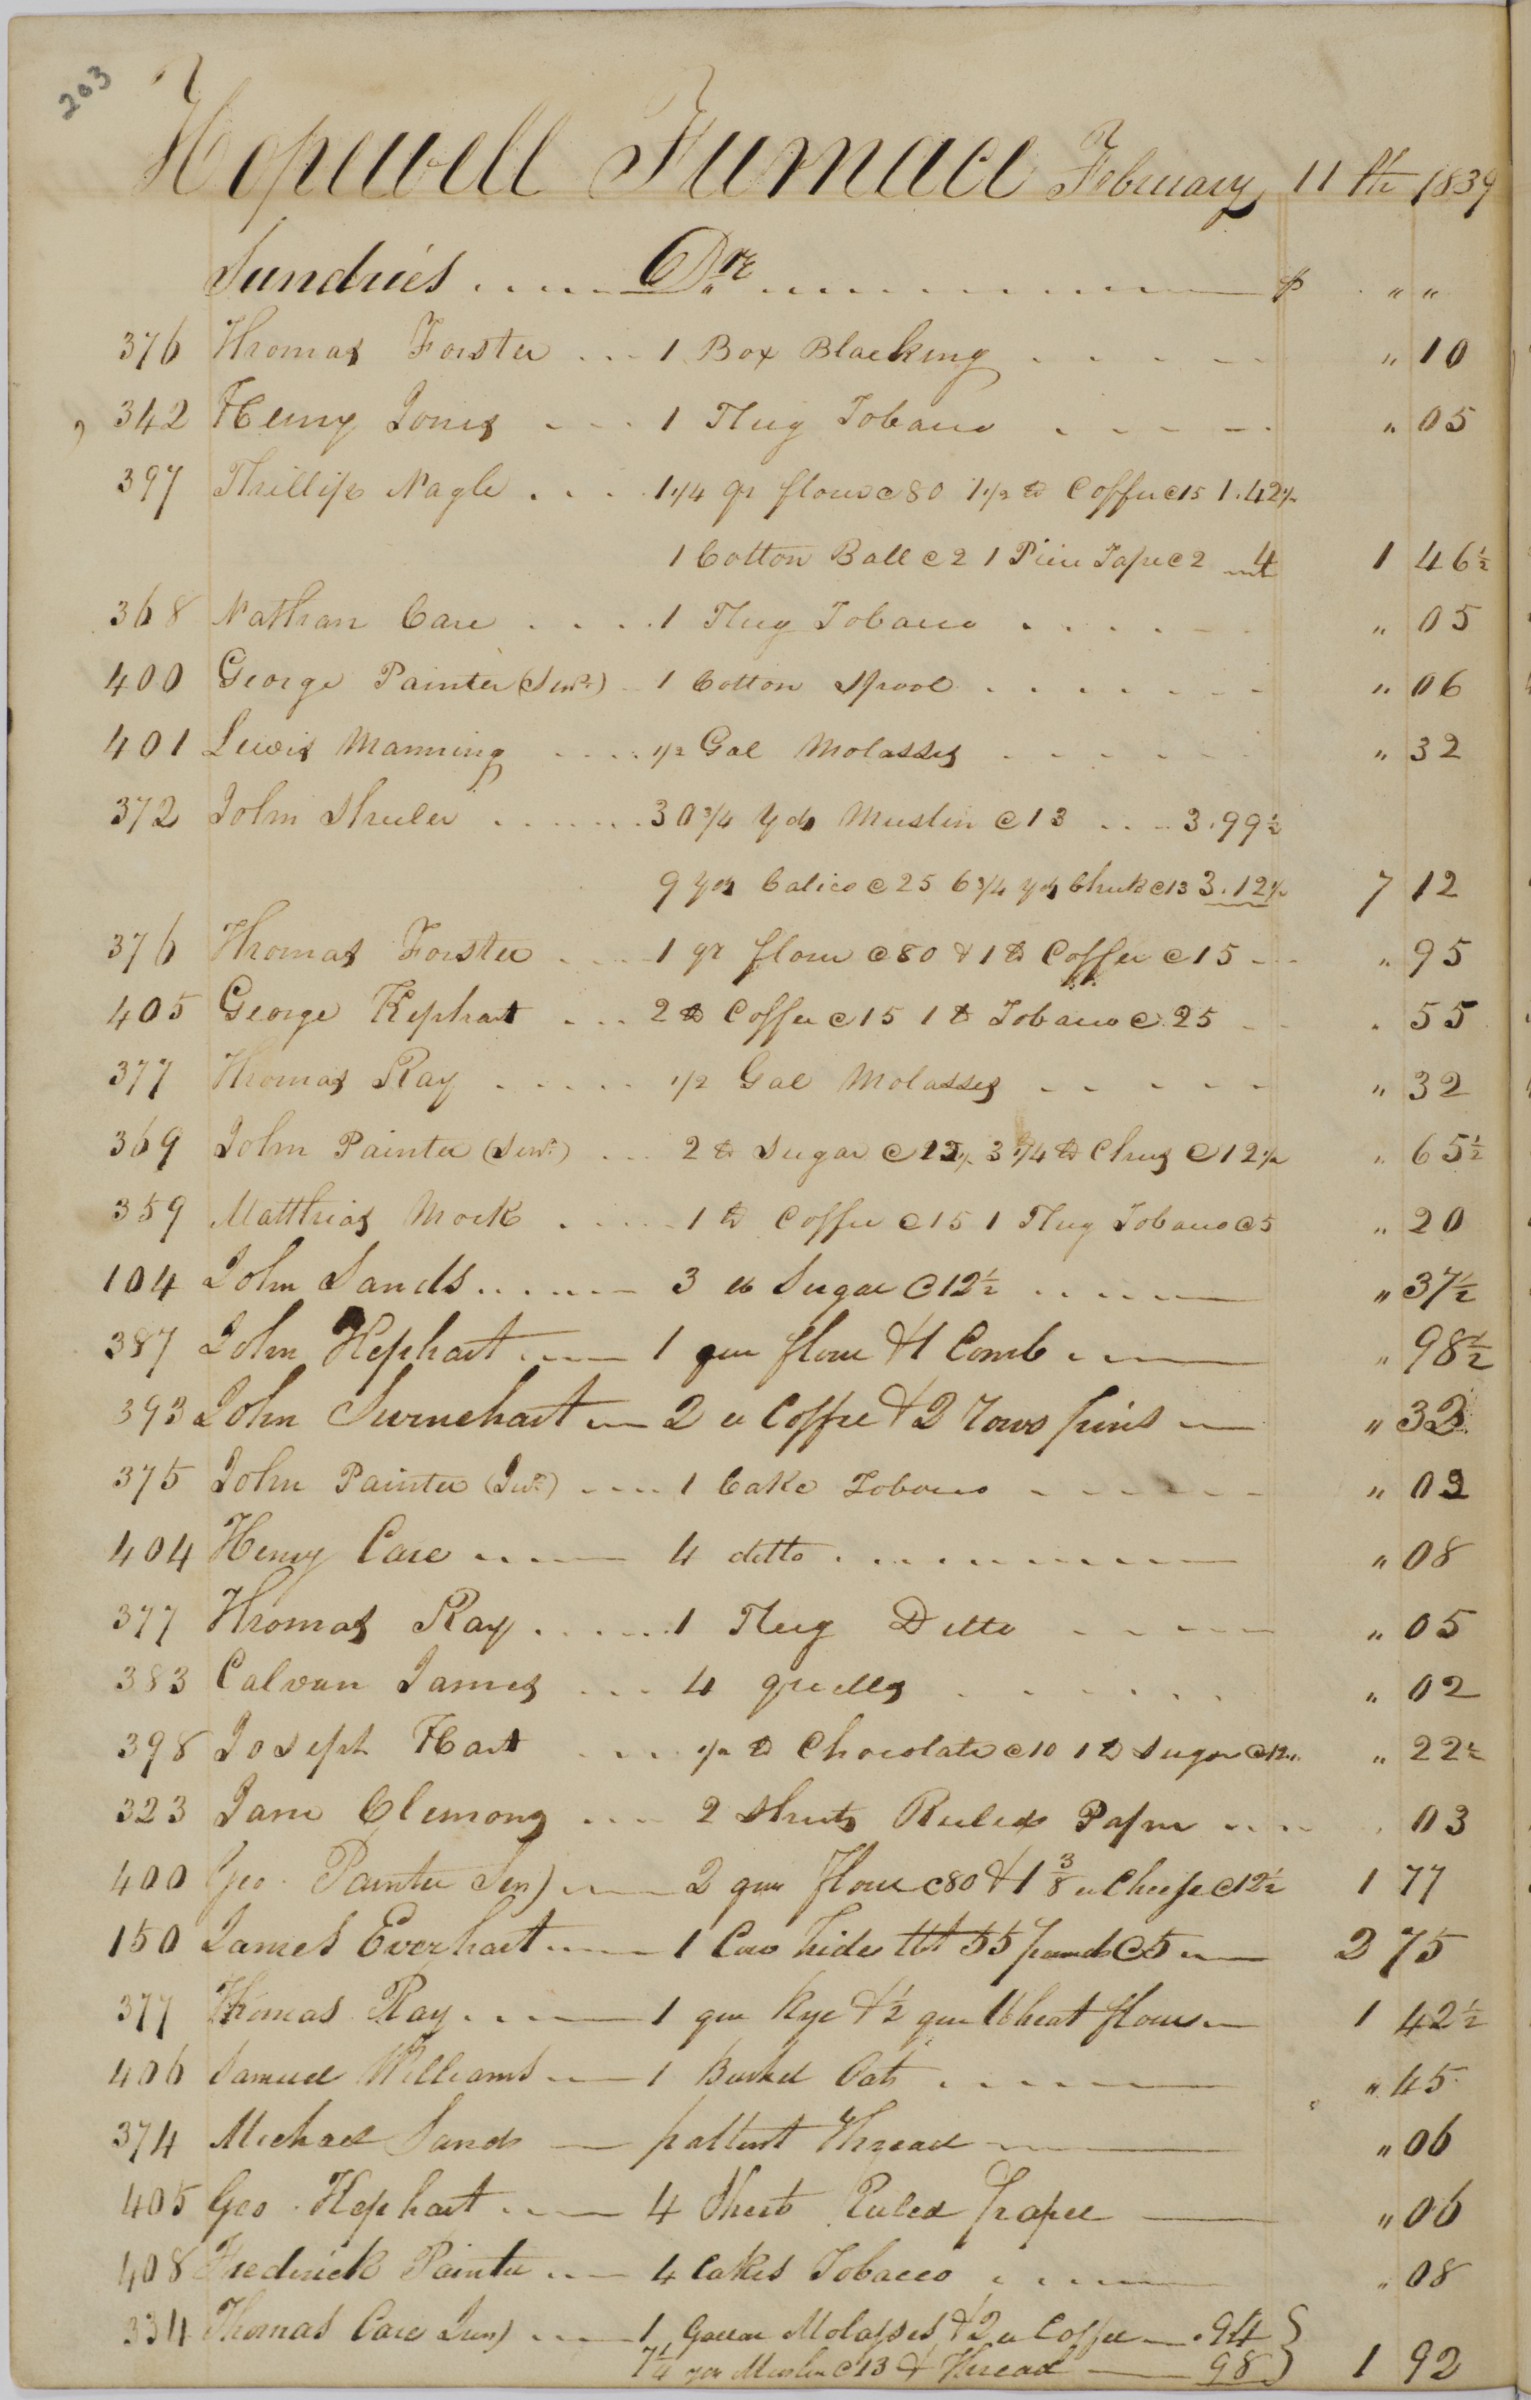 203
Hopewell Furnace February 11th 1839
Sundries ..... Dr. ............ $ " "
376 Thomas Forster ... 1 Box Blacking . . . . . " 10
342 Henry Jones . . . 1 Plug Tobacco . . . . . " 05
397 Phillip Nagle . . . . 1 1/4 qr flour @ 80 1 1/2 lb Coffee @ 15 1.42 1/2
1 Cotton Ball @ 2 1 Piece Tape @ 2 4 1 46 1/2
368 Nathan Care . . . . 1 Plug Tobacco . . . . . " 05
400 George Painter (Senr.) .. 1 Cotton Spool . . . . . . . " 06
401 Lewis Manning .... 1/2 Gal Molasses . . . . . . " 32
372 John Shuler ....... 30 3/4 Yds Muslin @ 13 .... 3.99 1/2
9 Yds Calico @ 25 6 3/4 yds Check @ 13 3.12 1/2 7 12
376 Thomas Forster .... 1 qr flour @ 80 & 1 lb Coffee @ 15 .. " 95
405 George Kephart ... 2 lb Coffee @ 15 1 lb Tobacco @ 25 .. " 55
377 Thomas Ray ..... 1/2 Gal Molasses . . . . . " 32
369 John Painter (Senr.) ... 2 lb Sugar @ 12 1/2 3 1/4 lb Chees @ 12 1/2 " 65 1/2
359 Matthias Mock ..... 1 lb Coffee @ 15 1 Plug Tobacco @ 5 " 20
104 John Sands ....... 3 lb Sugar @ 12 1/2 ..... " 37 1/2
387 John Hephart .... 1 qur flour & 1 Comb ... " 98 1/2
393 John Swinehart ... 2 lb Coffee & 2 rows pins .. " 32
375 John Painter (Jur.) .... 1 Cake Tobacco . . . . . . " 02
404 Henry Care .... 4 ditto .......... " 08
377 Thomas Ray ...... 1 Plug Ditto ..... " 05
383 Calvan James ... 4 quills . . . . . . " 02
398 Joseph Hart ... 1/2 lb Chocolate @ 10 1 lb Sugar @ 12 1/2 " 22 1/2
323 Jane Clemons ... 2 Sheets Ruled Paper .... " 03
400 Geo. Painter Sen) .... 2 qur flour @ 80 & 1 3/8 lb Cheese @ 12 1/2 1 77
150 James Everhart .... 1 Cow hide Wt 55 pounds @ 5 ... 2 75
377 Thomas Ray .... 1 qur Rye & 1/2 qur Wheat flour .. 1 42 1/2
406 Samuel Williams ... 1 Bushel Oats ...... " 45
374 Michael Sands — pattent Thread .... " 06
405 Geo. Hephart ... 4 Sheets Ruled paper — " 06
408 Frederick Painter ... 4 Cakes Tobacco ..... " 08
334 Thomas Care Jun) .... 1 Gallon Molasses & 2 lb Coffee ... .94 }
7 1/4 yds Muslin @ 13 & Thread — 98 } 1 92